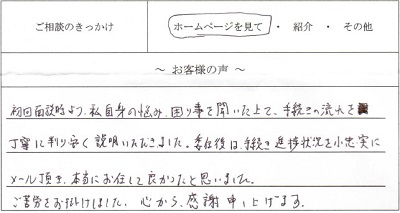 ご相談のきっかけ
ホームページを見て ・ 紹介 ・ その他
～ お客様の声 ～
初回面談時より、私自身の悩み、困り事を聞いた上で、手続きの流れを
丁寧に判り安く説明いただきました。委任後は、手続き進捗状況を小忠実に
メール頂き、本当にお任して良かったと思いました。
ご苦労をお掛けしました。心から、感謝申し上げます。